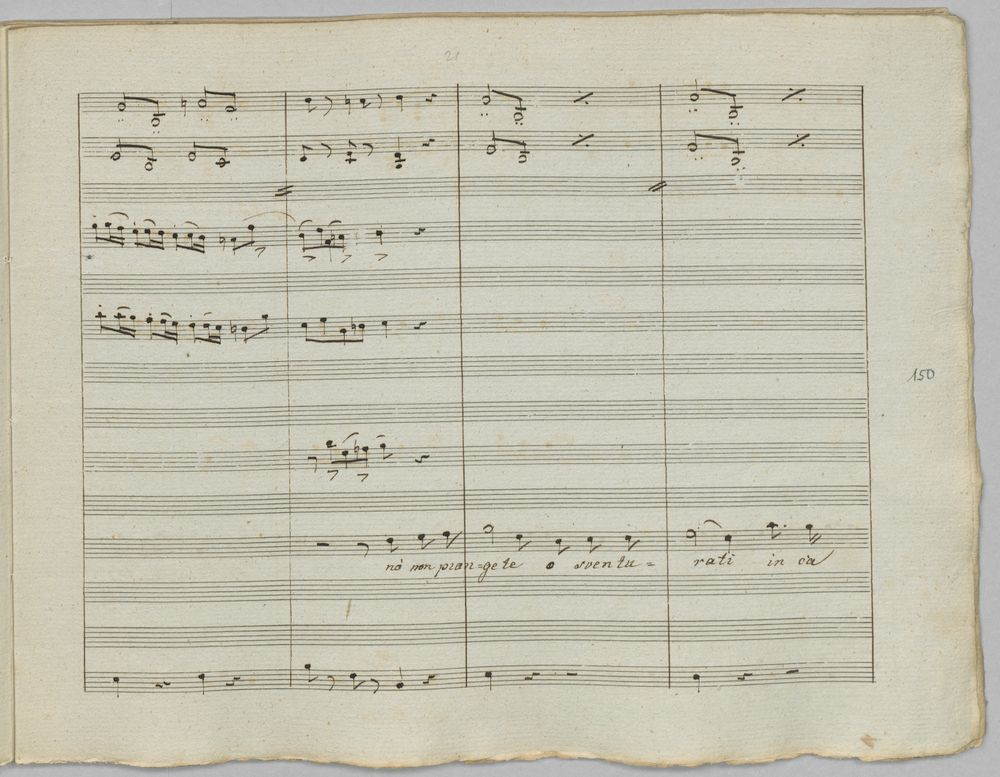 21
150
nò non pian=gete o sventu= rati in ca